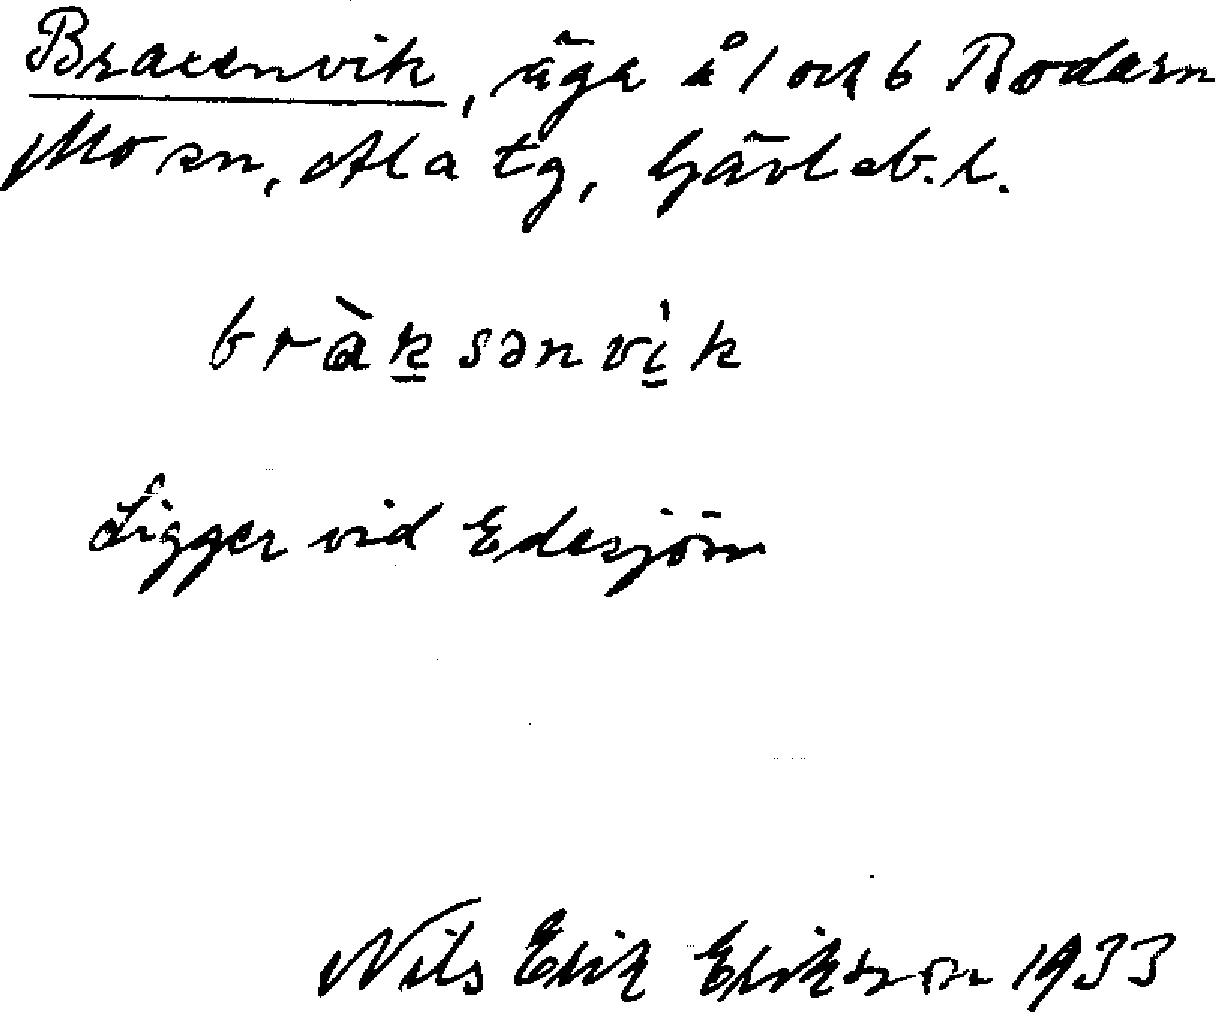 Braxenvik, äga å 1 och 6 Rodern
Mo sn, Ala tg, Gävleb. l.
brɑ̀ksənvìk
Ligger vid Edesjön
Nils Erik Erikson 1933